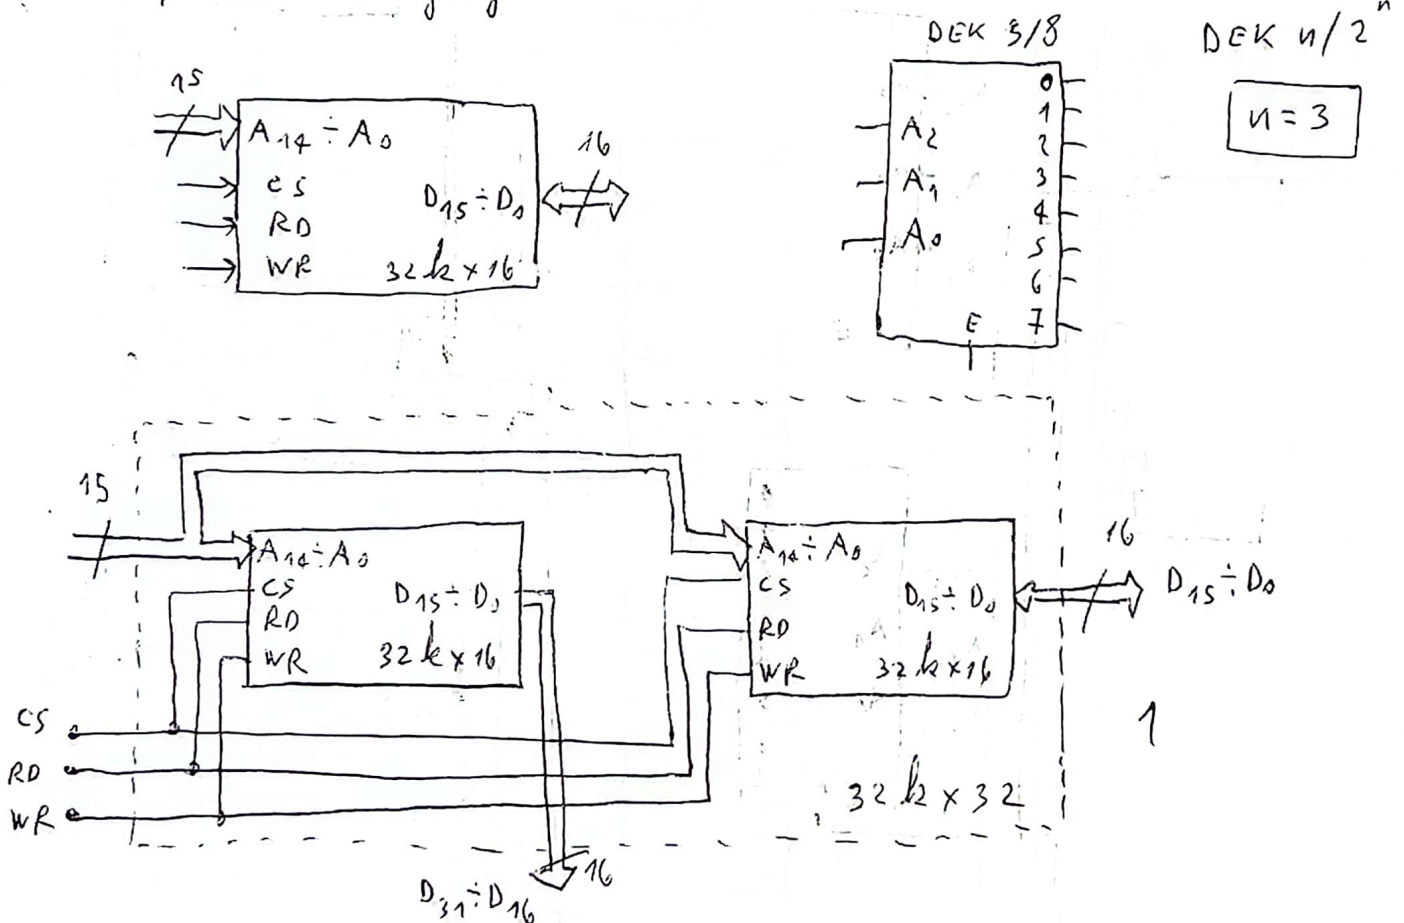 DEK 3/8
DEK n/2ⁿ
n = 3
15
A₁₄ ÷ A₀
CS
RD
WR
D₁₅ ÷ D₀
32k × 16
16
A₂
A₁
A₀
E
0
1
2
3
4
5
6
7
15
A₁₄ ÷ A₀
CS
RD
WR
D₁₅ ÷ D₀
32k × 16
A₁₄ ÷ A₀
CS
RD
WR
D₁₅ ÷ D₀
32k × 16
16
D₁₅ ÷ D₀
CS
RD
WR
1
32k × 32
16
D₃₁ ÷ D₁₆